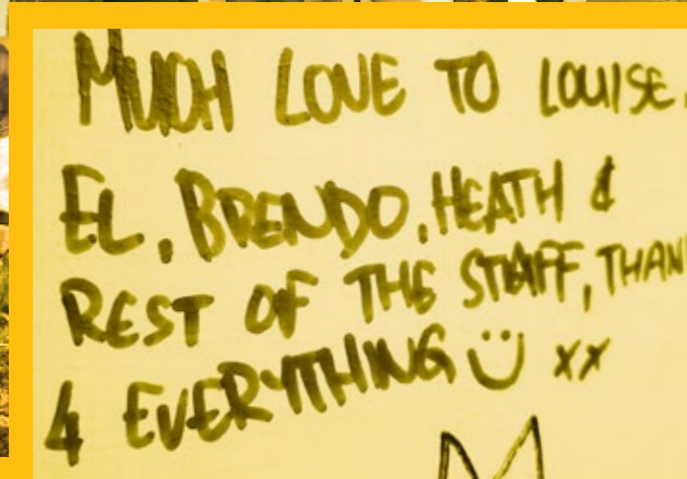 MUCH LOVE TO LOUISE.
EL, BRENDO, HEATH &
REST OF THE STAFF, THAN
4 EVERYTHING Ü xx